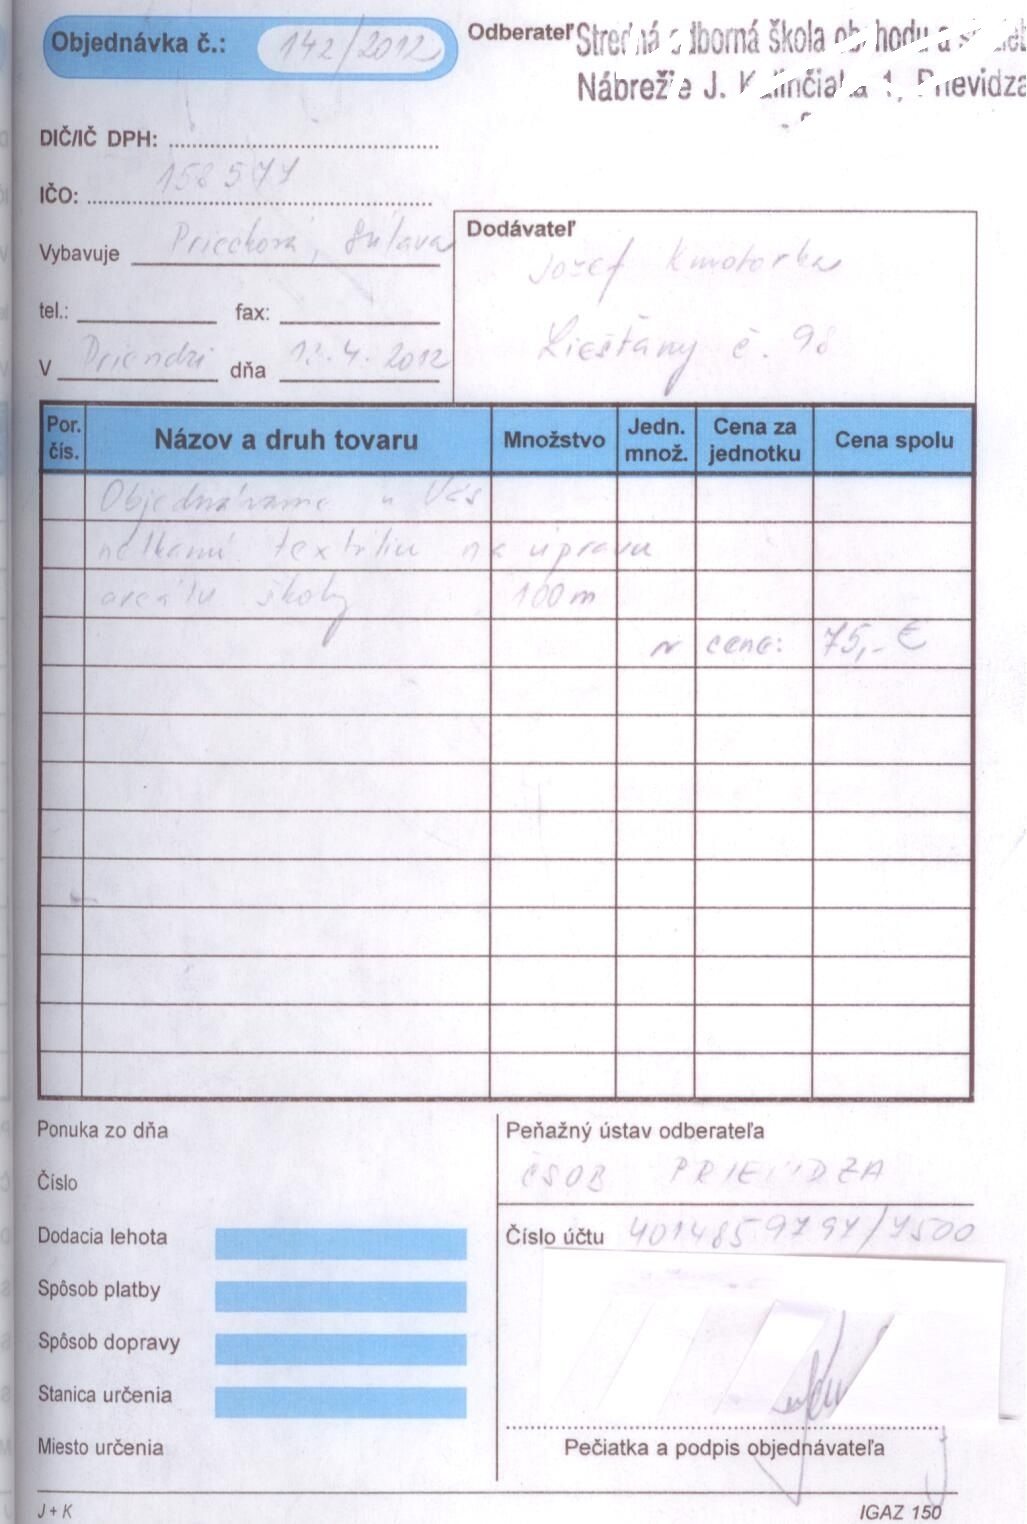 Objednávka č.: 142/2012
Odberateľ Stredná odborná škola obchodu a
Nábrežie J. Kalinčiaka 1, Prievidza
DIČ/IČ DPH:
IČO: 158577
Vybavuje
tel.: fax:
V dňa 4. 2012
Dodávateľ
Jozef Kmotorka
Liešťany č. 98
Por. čís.
Názov a druh tovaru
Množstvo
Jedn. množ.
Cena za jednotku
Cena spolu
Objednávame u Vás
netkanú textíliu na úpravu
areálu školy 100m
v cene: 75,- €
Ponuka zo dňa
Číslo
Dodacia lehota
Spôsob platby
Spôsob dopravy
Stanica určenia
Miesto určenia
Peňažný ústav odberateľa
ČSOB PRIEVIDZA
Číslo účtu 4014859797/7500
Pečiatka a podpis objednávateľa
J + K
IGAZ 150